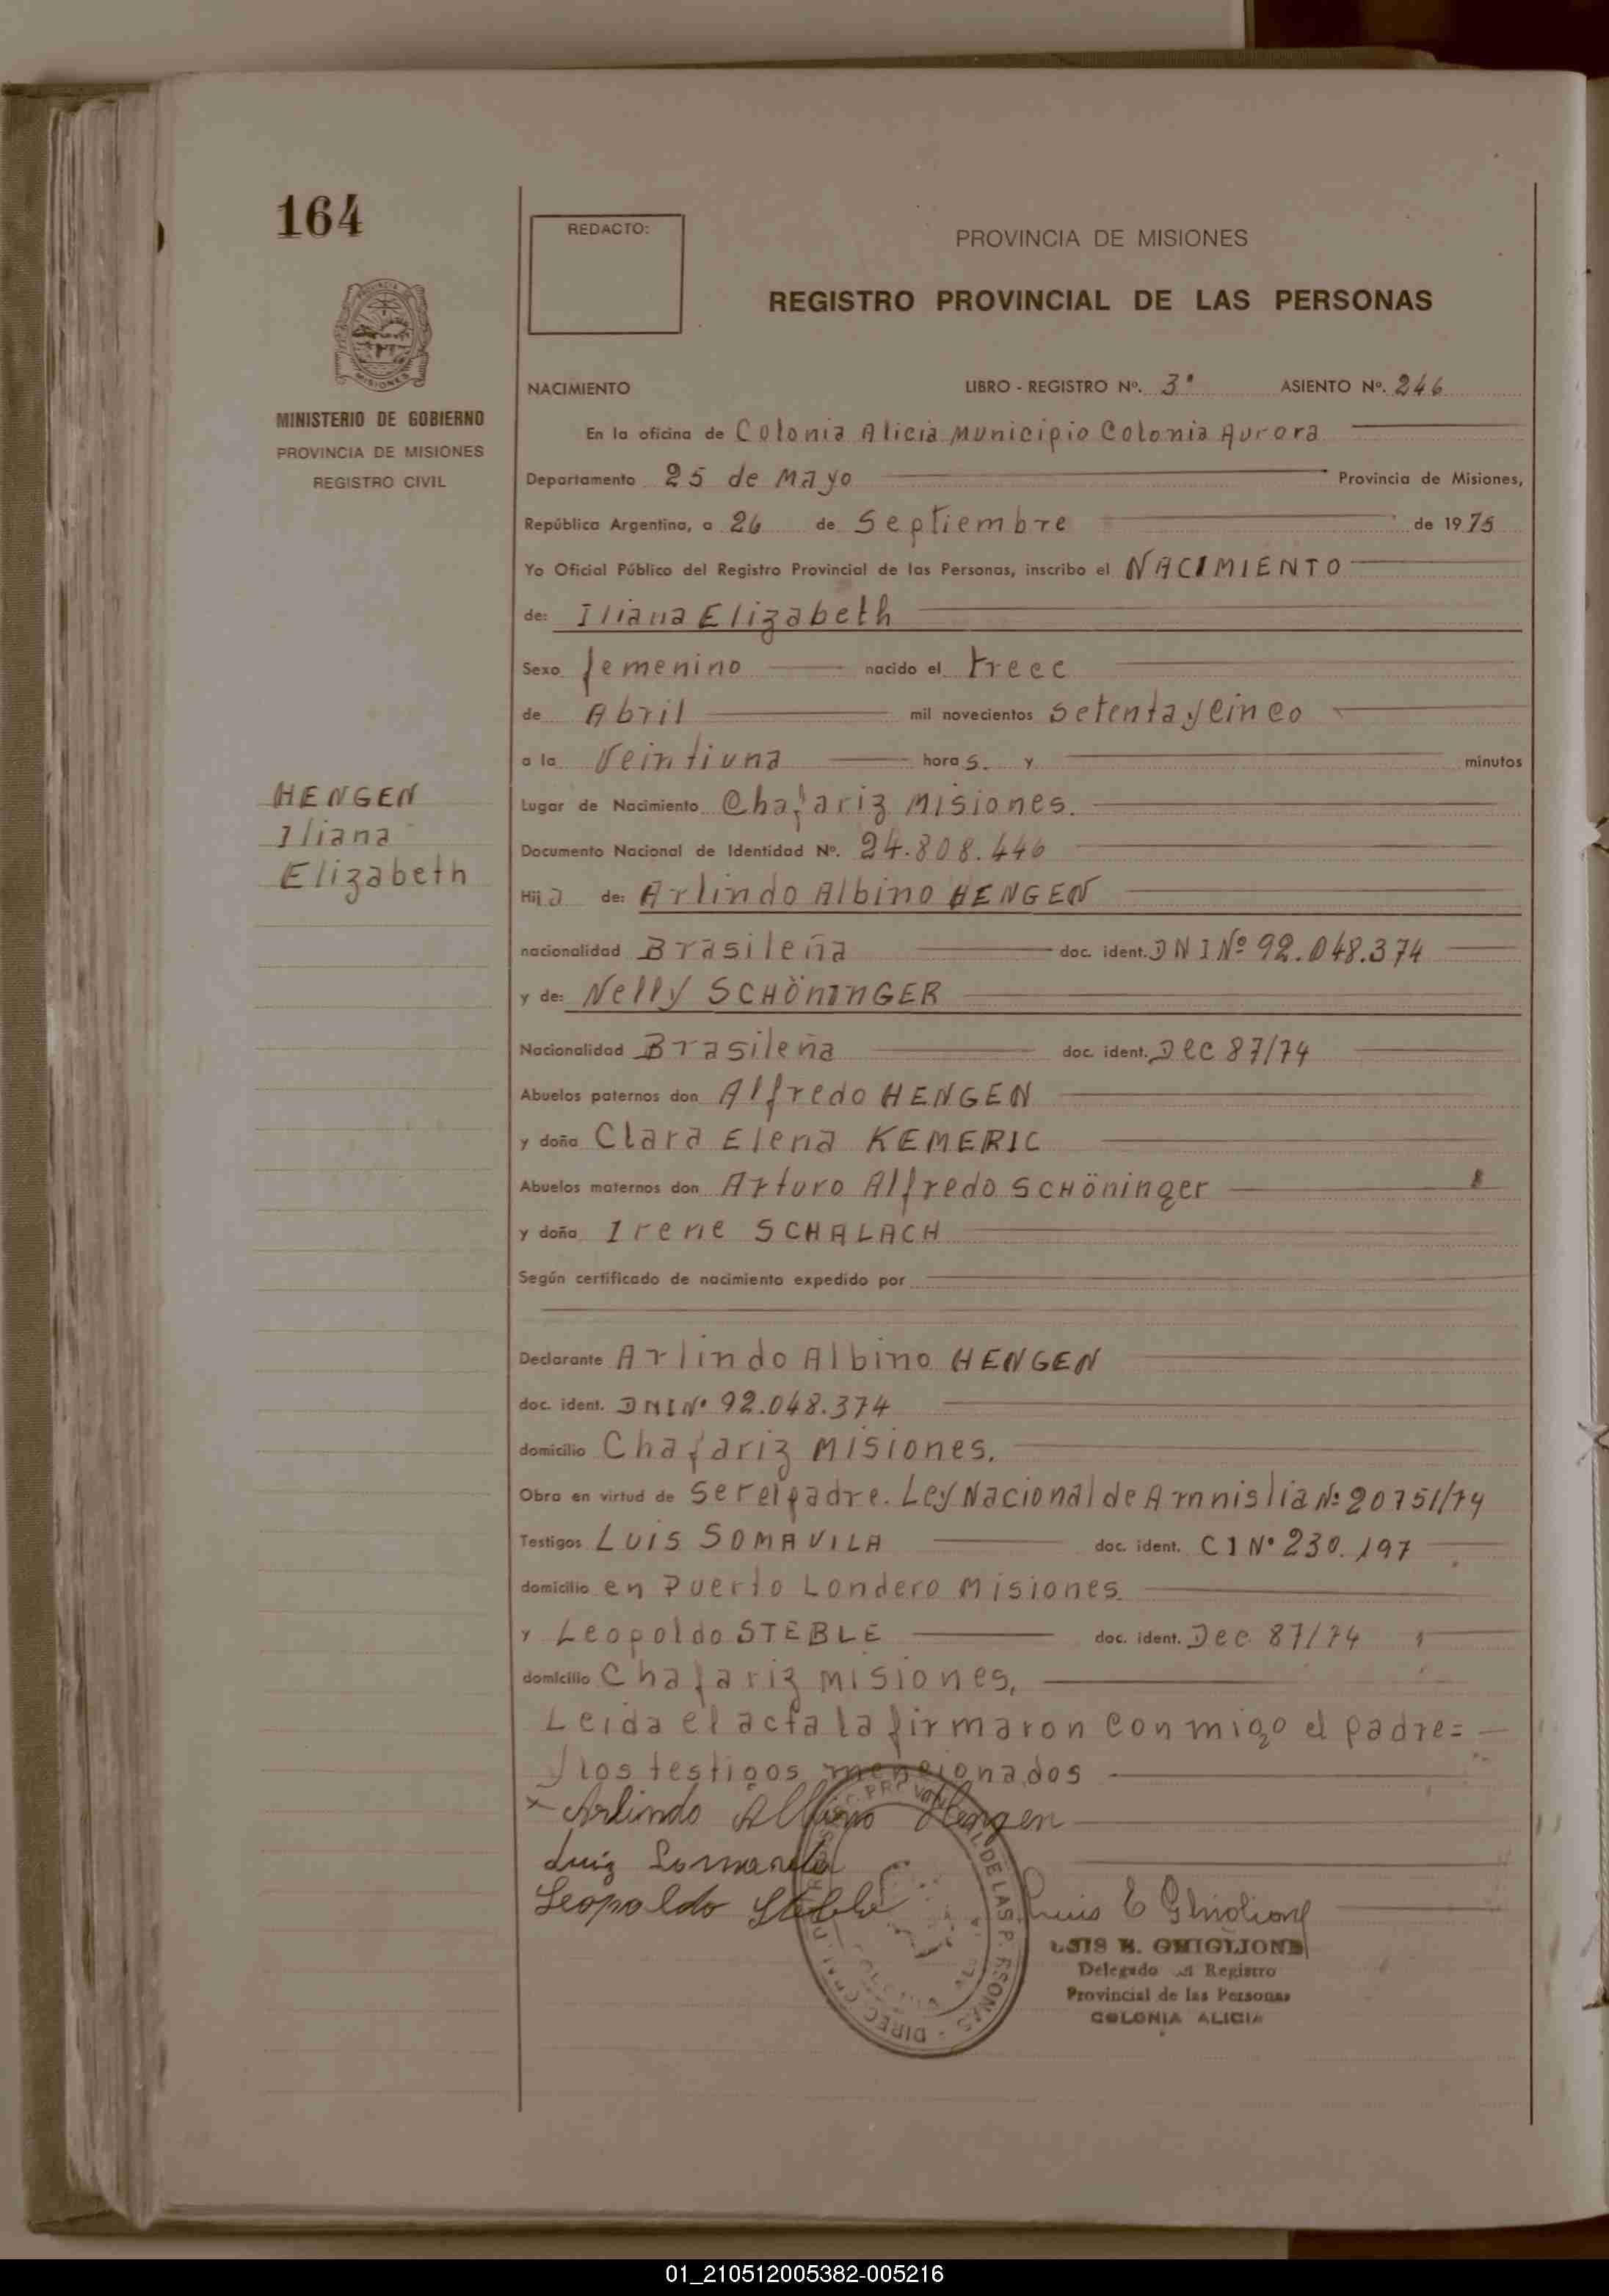 164
REDACTO:
PROVINCIA DE MISIONES
REGISTRO PROVINCIAL DE LAS PERSONAS
MISIONES
MINISTERIO DE GOBIERNO
PROVINCIA DE MISIONES
REGISTRO CIVIL
NACIMIENTO LIBRO - REGISTRO Nº. 3° ASIENTO Nº. 246
En la oficina de Colonia Alicia Municipio Colonia Aurora
Departamento 25 de Mayo Provincia de Misiones,
República Argentina, a 26 de Septiembre de 1975
Yo Oficial Público del Registro Provincial de las Personas, inscribo el NACIMIENTO
de: Iliana Elizabeth
Sexo femenino nacido el trece
de Abril mil novecientos setenta y cinco
a la Veintiuna horas. y minutos
HENGEN
Iliana
Elizabeth
Lugar de Nacimiento Chafariz Misiones.
Documento Nacional de Identidad Nº. 24.808.446
Hija de: Arlindo Albino HENGEN
nacionalidad Brasileña doc. ident. DNI Nº 92.048.374
y de: Nelly SCHÖNINGER
Nacionalidad Brasileña doc. ident. Dec 87/74
Abuelos paternos don Alfredo HENGEN
y doña Clara Elena KEMERIC
Abuelos maternos don Arturo Alfredo SCHöninger
y doña Irene SCHALACH
Según certificado de nacimiento expedido por
Declarante Arlindo Albino HENGEN
doc. ident. DNI Nº 92.048.374
domicilio Chafariz Misiones.
Obra en virtud de ser el padre. Ley Nacional de Amnistia Nº 20751/74
Testigos LUIS SOMAVILA doc. ident. CI Nº 230.197
domicilio en Puerto Londero Misiones.
y Leopoldo STEBLE doc. ident. Dec 87/74
domicilio Chafariz Misiones,
Leida el acta la firmaron conmigo el padre=
y los testigos mencionados
x Arlindo Albino Hengen
Luiz Somavila
Leopoldo Steble
Luis E Ghiglione
LUIS E. GHIGLIONE
Delegado del Registro
Provincial de las Personas
COLONIA ALICIA
01_210512005382-005216